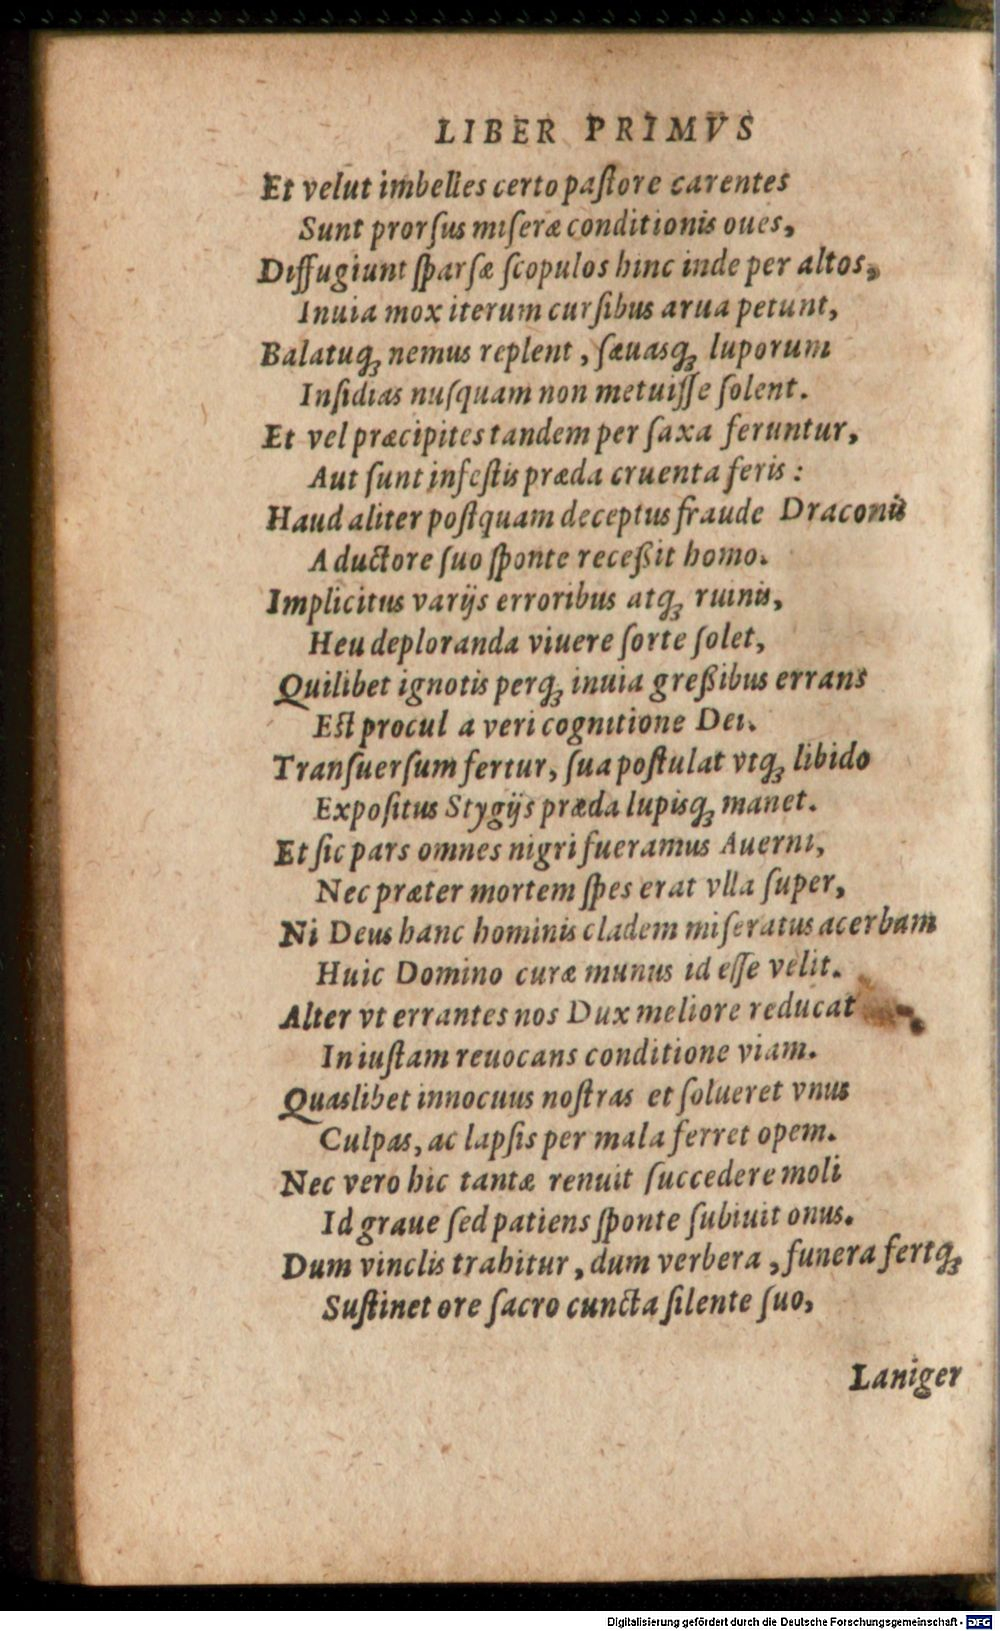 LIBER PRIMVS
Et velut imbelles certo paſtore carentes
Sunt prorſus miſeræ conditionis oues,
Diffugiunt ſparſæ ſcopulos hinc inde per altos,
Inuia mox iterum curſibus arua petunt,
Balatuq́ꝫ nemus replent, ſæuasq́ꝫ luporum
Inſidias nuſquam non metuiſſe ſolent.
Et vel præcipites tandem per ſaxa feruntur,
Aut ſunt infeſtis præda cruenta feris:
Haud aliter poſtquam deceptus fraude Draconis
A ductore ſuo ſponte receßit homo.
Implicitus varijs erroribus atqꝫ ruinis,
Heu deploranda viuere ſorte ſolet,
Quilibet ignotis perqꝫ inuia greßibus errans
Eſt procul a veri cognitione Dei.
Tranſuerſum fertur, ſua poſtulat vtqꝫ libido
Expoſitus Stygijs præda lupisqꝫ manet.
Et ſic pars omnes nigri fueramus Auerni,
Nec præter mortem ſpes erat vlla ſuper,
Ni Deus hanc hominis cladem miſeratus acerbam
Huic Domino curæ munus id eſſe velit.
Alter vt errantes nos Dux meliore reducat
In iuſtam reuocans conditione viam.
Quaslibet innocuus noſtras et ſolueret vnus
Culpas, ac lapſis per mala ferret opem.
Nec vero hic tantæ renuit ſuccedere moli
Id graue ſed patiens ſponte ſubiuit onus.
Dum vinclis trahitur, dum verbera, funera fertqꝫ
Suſtinet ore ſacro cuncta ſilente ſuo,
Laniger
Digitalisierung gefördert durch die Deutsche Forschungsgemeinschaft - DFG